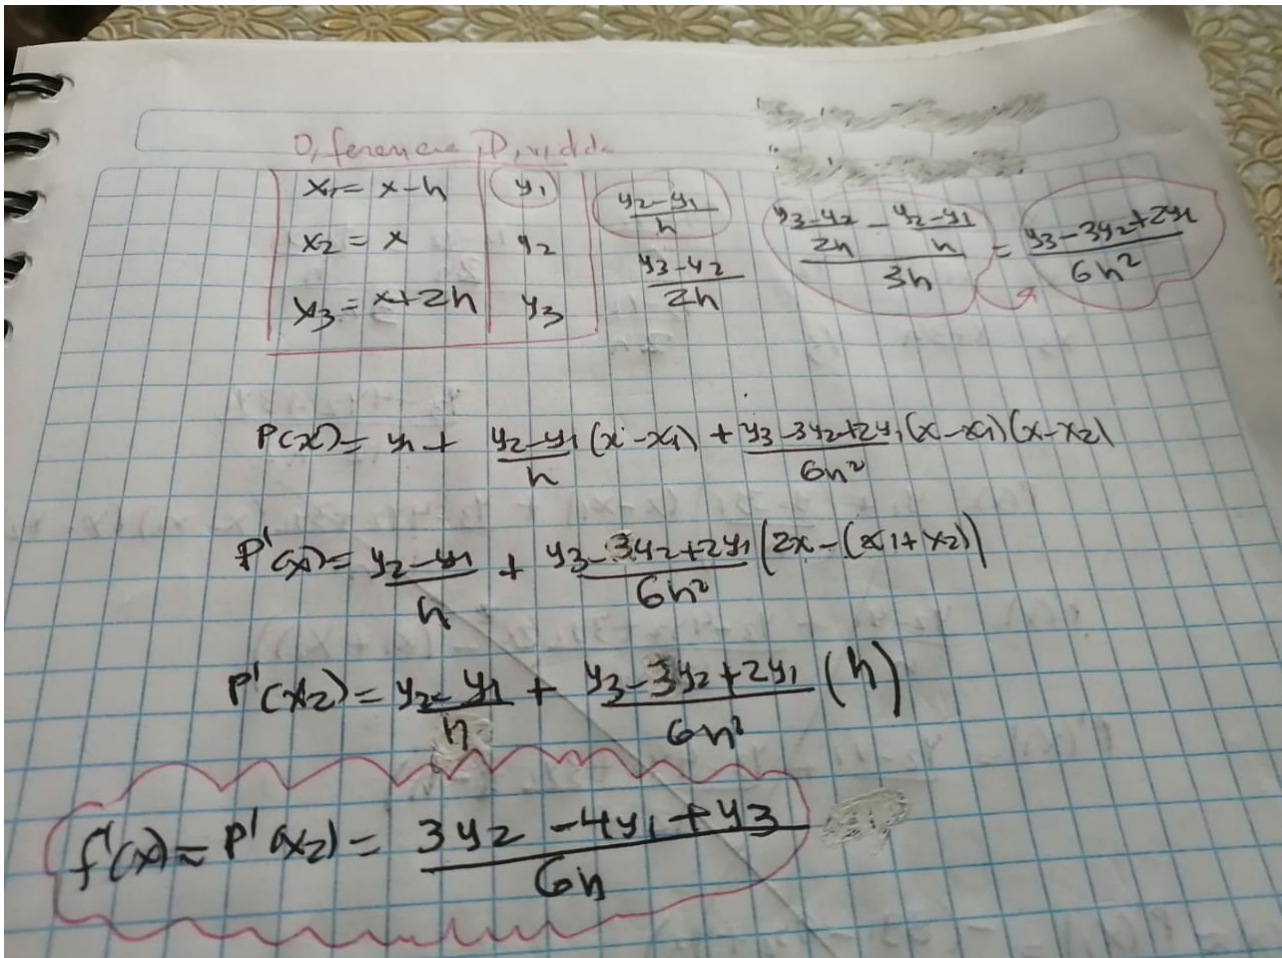 Diferencia Dividida
x1 = x-h y1
x2 = x y2
x3 = x+2h y3
(y2-y1)/h
(y3-y2)/2h
((y3-y2)/2h - (y2-y1)/h)/3h = (y3-3y2+2y1)/6h²
P(x) = y1 + (y2-y1)/h (x-x1) + (y3-3y2+2y1)/6h² (x-x1)(x-x2)
P'(x) = (y2-y1)/h + (y3-3y2+2y1)/6h² (2x-(x1+x2))
P'(x2) = (y2-y1)/h + (y3-3y2+2y1)/6h² (h)
f'(x) ≈ P'(x2) = (3y2-4y1+y3)/6h